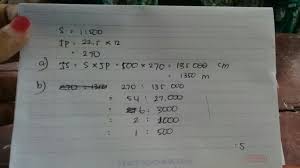 S = 1:500
JP = 22,5 × 12
= 270
a) JS = S × JP = 500 × 270 = 135 000 cm
= 1350 m
b) 270 : 135.000
= 54 : 27.000
= 6 : 3000
= 2 : 1000
= 1 : 500